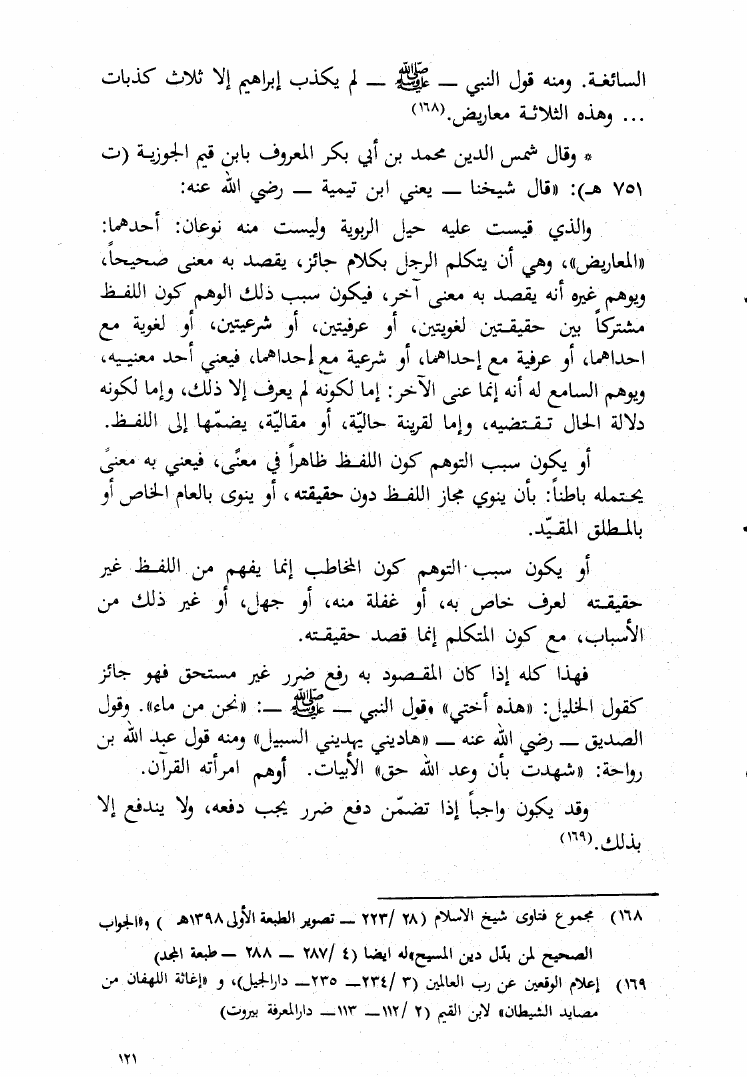 السائغة. ومنه قول النبي — ﷺ — لم يكذب إبراهيم إلا ثلاث كذبات
... وهذه الثلاثة معاريض.(١٦٨)
* وقال شمس الدين محمد بن أبي بكر المعروف بابن قيم الجوزية (ت
٧٥١ هـ): «قال شيخنا — يعني ابن تيمية — رضي الله عنه:
والذي قيست عليه حيل الربوية وليست منه نوعان: أحدهما:
«المعاريض»، وهي أن يتكلم الرجل بكلام جائز، يقصد به معنى صحيحاً،
ويوهم غيره أنه يقصد به معنى آخر، فيكون سبب ذلك الوهم كون اللفظ
مشتركاً بين حقيقتين لغويتين، أو عرفيتين، أو شرعيتين، أو لغوية مع
احداهما، أو عرفية مع إحداهما، أو شرعية مع إحداهما، فيعني أحد معنييه،
ويوهم السامع له أنه إنما عنى الآخر: إما لكونه لم يعرف إلا ذلك، وإما لكونه
دلالة الحال تقتضيه، وإما لقرينة حاليّة، أو مقاليّة، يضمّها إلى اللفظ.
أو يكون سبب التوهم كون اللفظ ظاهراً في معنًى، فيعني به معنىً
يحتمله باطناً: بأن ينوي مجاز اللفظ دون حقيقته، أو ينوى بالعام الخاص أو
بالمطلق المقيّد.
أو يكون سبب التوهم كون المخاطب إنما يفهم من اللفظ غير
حقيقته لعرف خاص به، أو غفلة منه، أو جهل، أو غير ذلك من
الأسباب، مع كون المتكلم إنما قصد حقيقته.
فهذا كله إذا كان المقصود به رفع ضرر غير مستحق فهو جائز
كقول الخليل: «هذه أختي» وقول النبي — ﷺ —: «نحن من ماء». وقول
الصديق — رضي الله عنه — «هاديني يهديني السبيل» ومنه قول عبد الله بن
رواحة: «شهدت بأن وعد الله حق» الأبيات. أوهم امرأته القرآن.
وقد يكون واجباً إذا تضمّن دفع ضرر يجب دفعه، ولا يندفع إلا
بذلك.(١٦٩)
١٦٨) مجموع فتاوى شيخ الاسلام (٢٨ /٢٢٣ — تصوير الطبعة الأولى ١٣٩٨هـ ) و«الجواب
الصحيح لمن بدّل دين المسيح»له ايضا (٤ /٢٨٧ — ٢٨٨ — طبعة المجد)
١٦٩) إعلام الوقعين عن رب العالمين (٣ /٢٣٤— ٢٣٥ —دارالجيل)، و «إغاثة اللهفان من
مصايد الشيطان» لابن القيم (٢ /١١٢— ١١٣— دارالمعرفة بيروت)
١٢١